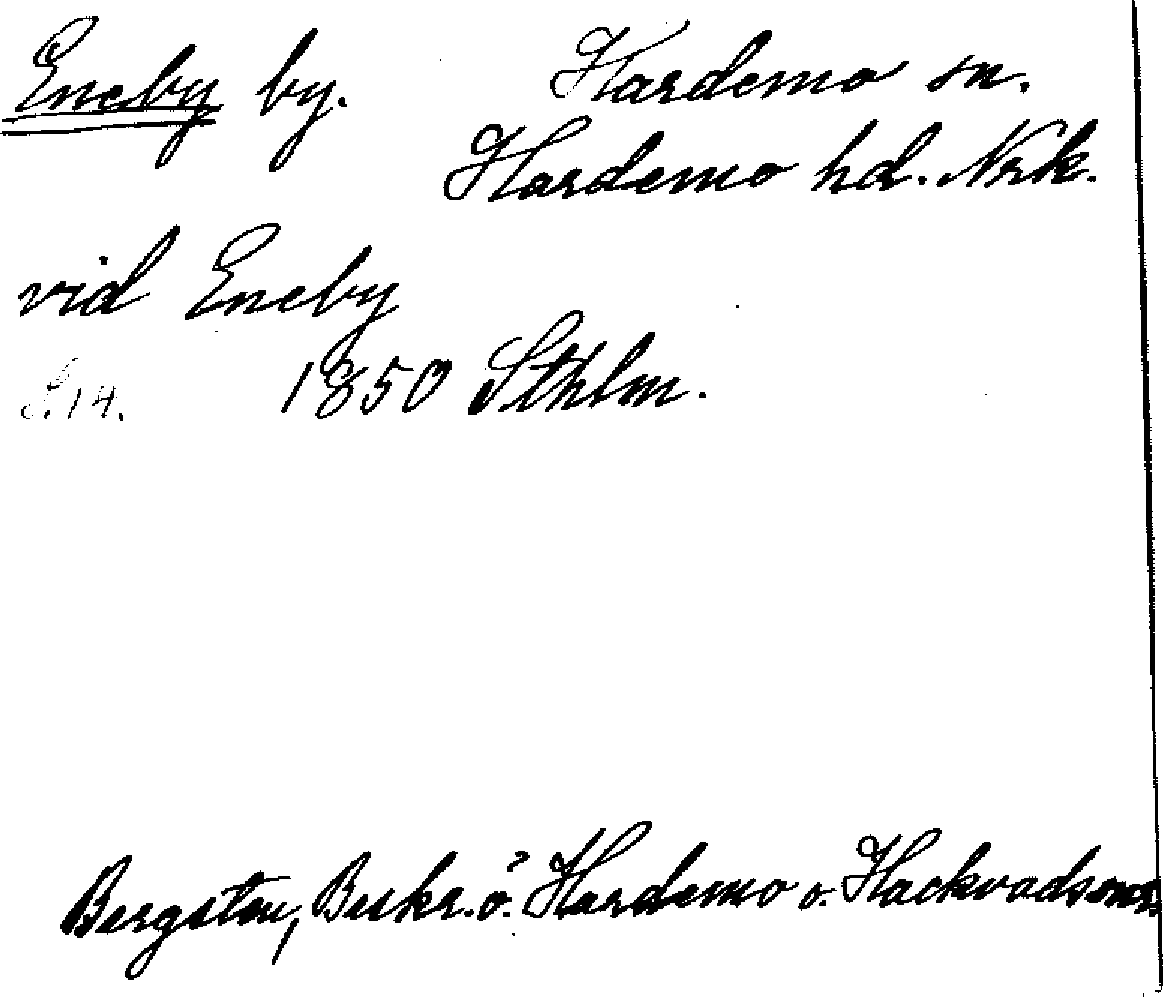 Eneby by. Hardemo sn.
Hardemo hd. Nrk.
vid Eneby
S. 14. 1850 Sthlm.
Bergsten, Beskr. ö. Hardemo o. Hackvads snr.